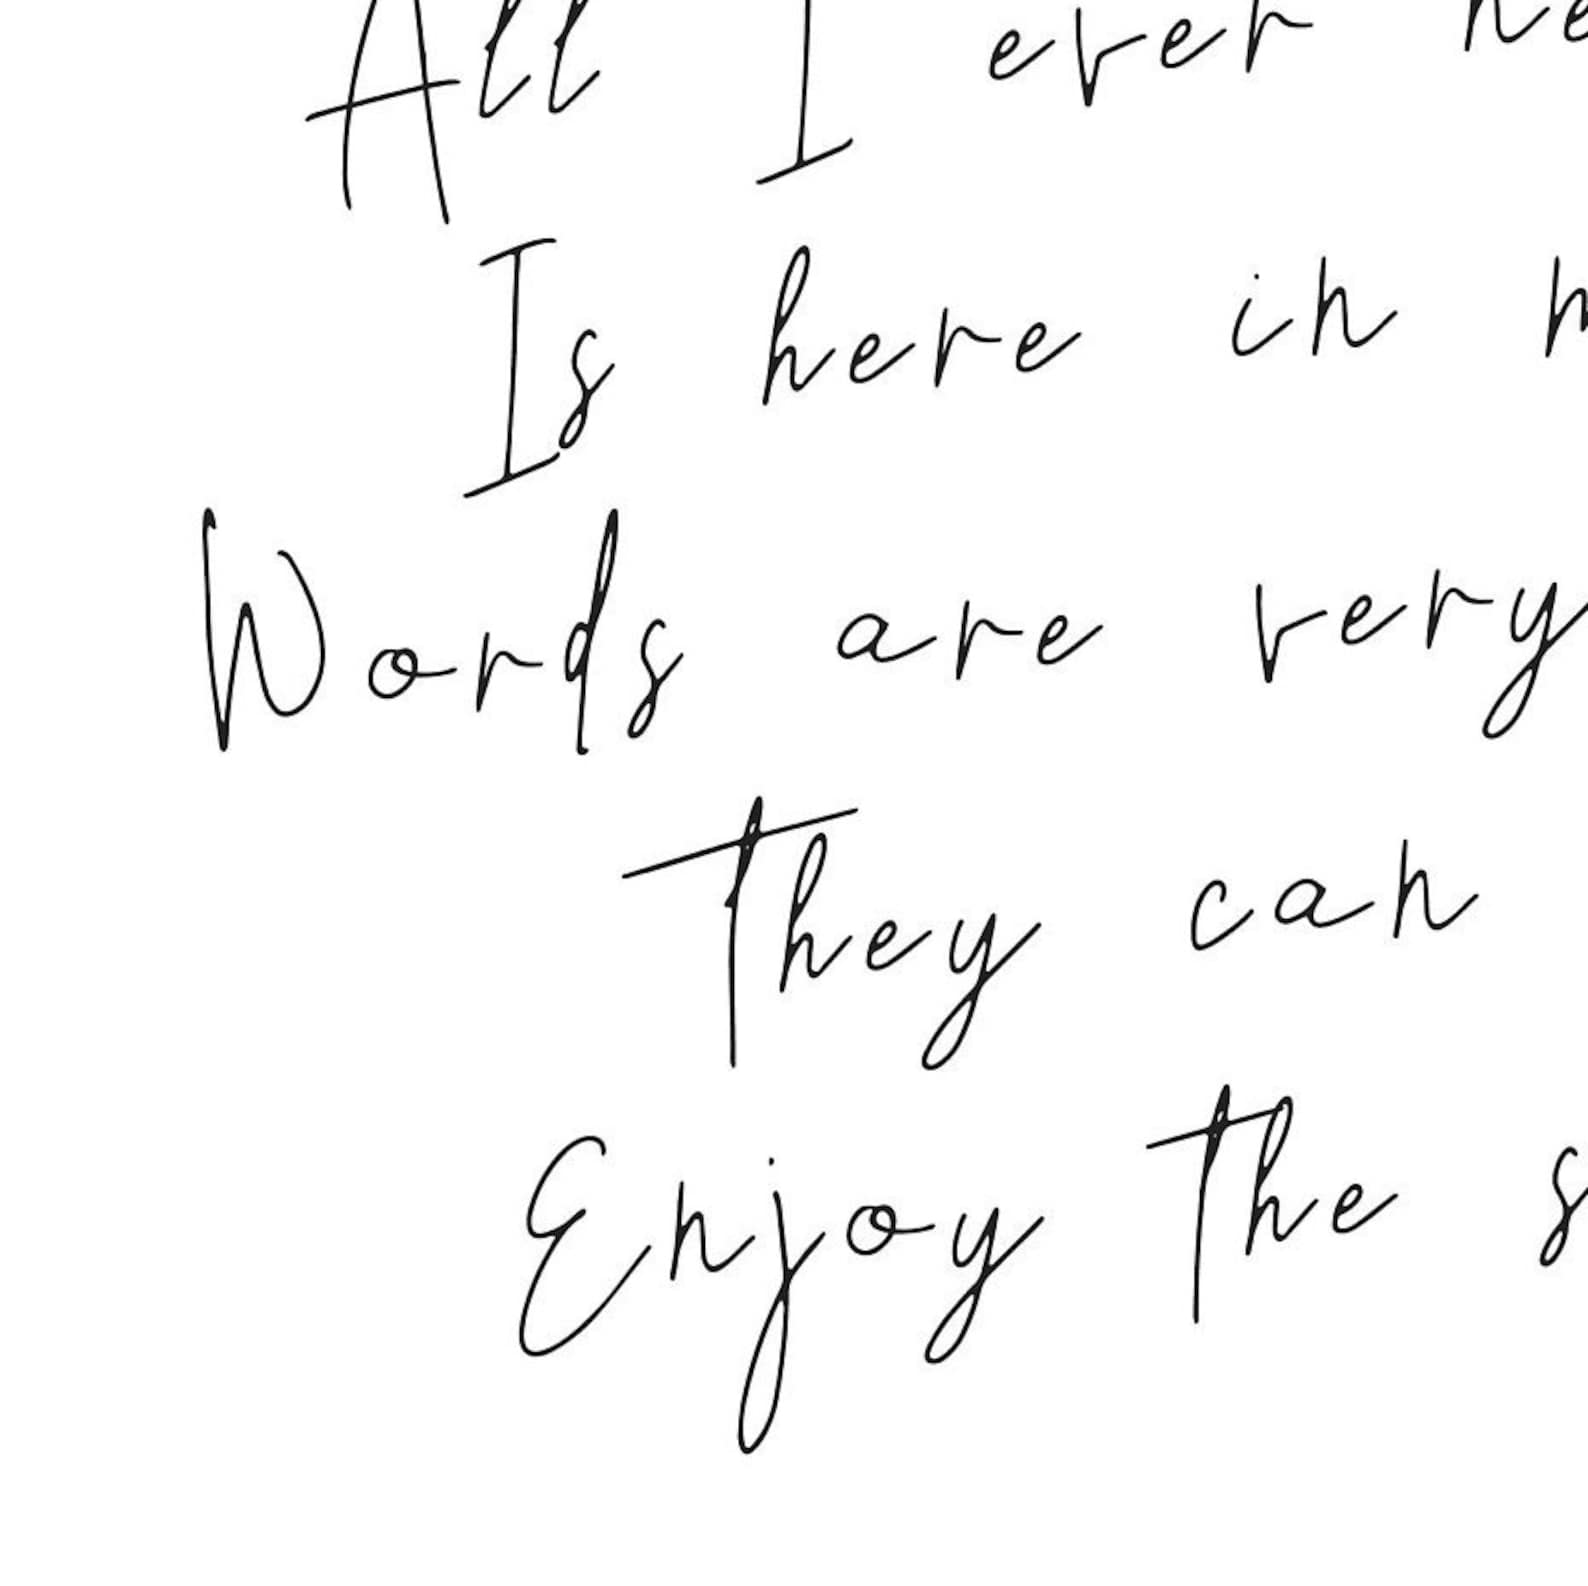 All I ever ne
Is here in m
Words are very
They can
Enjoy the s